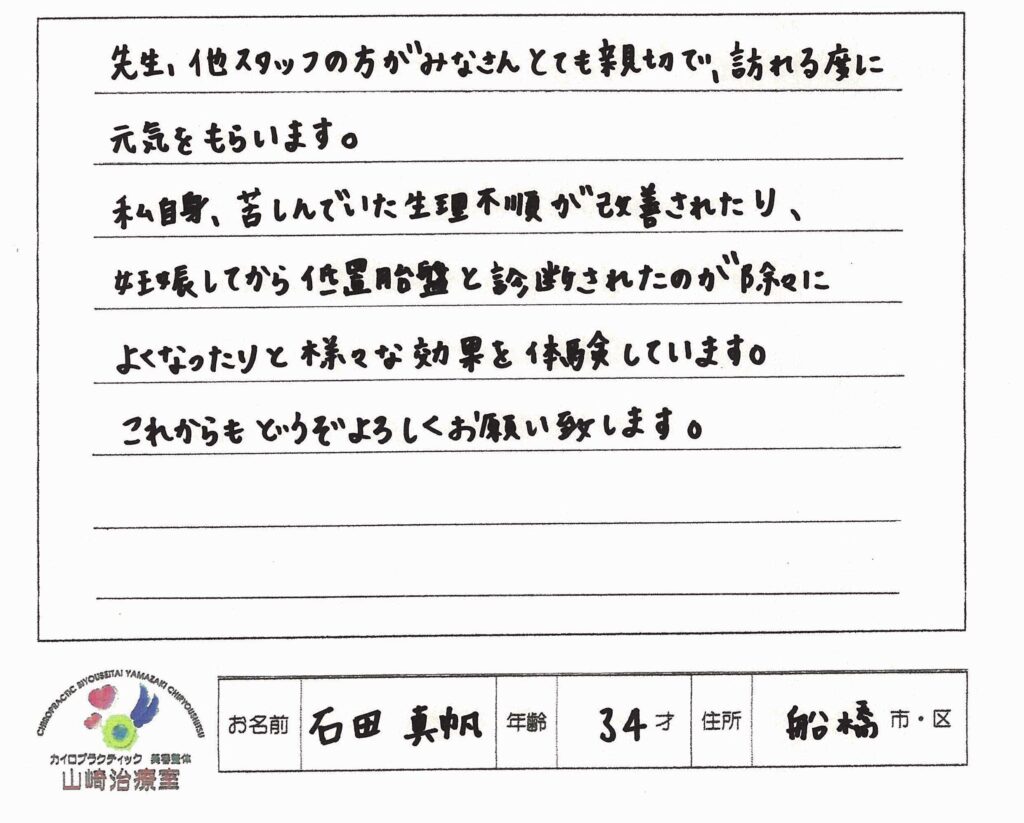 先生、他スタッフの方がみなさんとても親切で、訪れる度に
元気をもらいます。
私自身、苦しんでいた生理不順が改善されたり、
妊娠してから低置胎盤と診断されたのが除々に
よくなったりと様々な効果を体験しています。
これからもどうぞよろしくお願い致します。
CHIROPRACTIC BIYOUSEITAI YAMAZAKI CHIRYOUSHITSU
カイロプラクティック 美容整体
山崎治療室
お名前 石田 真帆 年齢 34才 住所 船橋 市・区